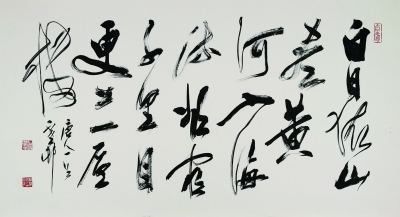 白日依山
尽黄
河入海
流欲穷
千里目
更上一层
楼
唐人一首